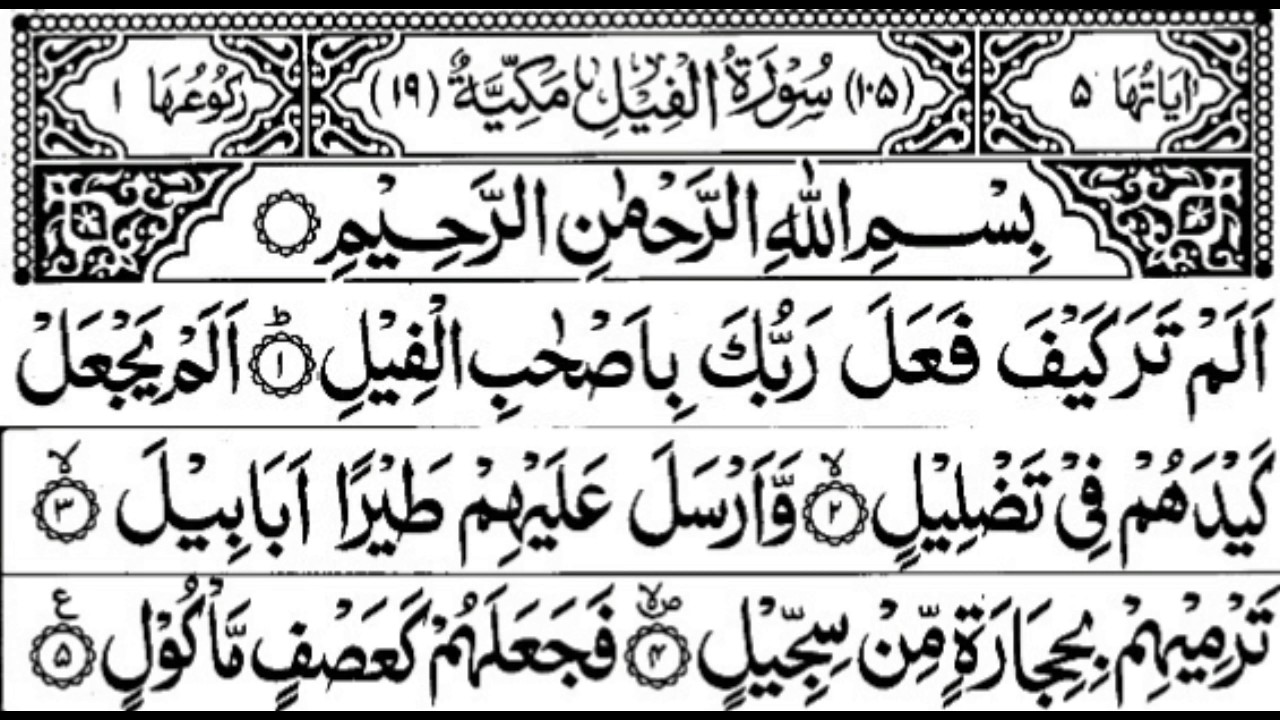 اٰيَاتُهَا ٥ (١٠٥) سُوْرَةُ الْفِيْلِ مَكِّيَّةٌ (١٩) رَكُوْعُهَا ١
بِسْمِ اللّٰهِ الرَّحْمٰنِ الرَّحِيْمِ
اَلَمْ تَرَ كَيْفَ فَعَلَ رَبُّكَ بِاَصْحٰبِ الْفِيْلِ ؕ ١ اَلَمْ يَجْعَلْ
كَيْدَهُمْ فِيْ تَضْلِيْلٍ ۙ ٢ وَّاَرْسَلَ عَلَيْهِمْ طَيْرًا اَبَابِيْلَ ۙ ٣
تَرْمِيْهِمْ بِحِجَارَةٍ مِّنْ سِجِّيْلٍ ۪ۙ ٤ فَجَعَلَهُمْ كَعَصْفٍ مَّاْكُوْلٍ ع ٥